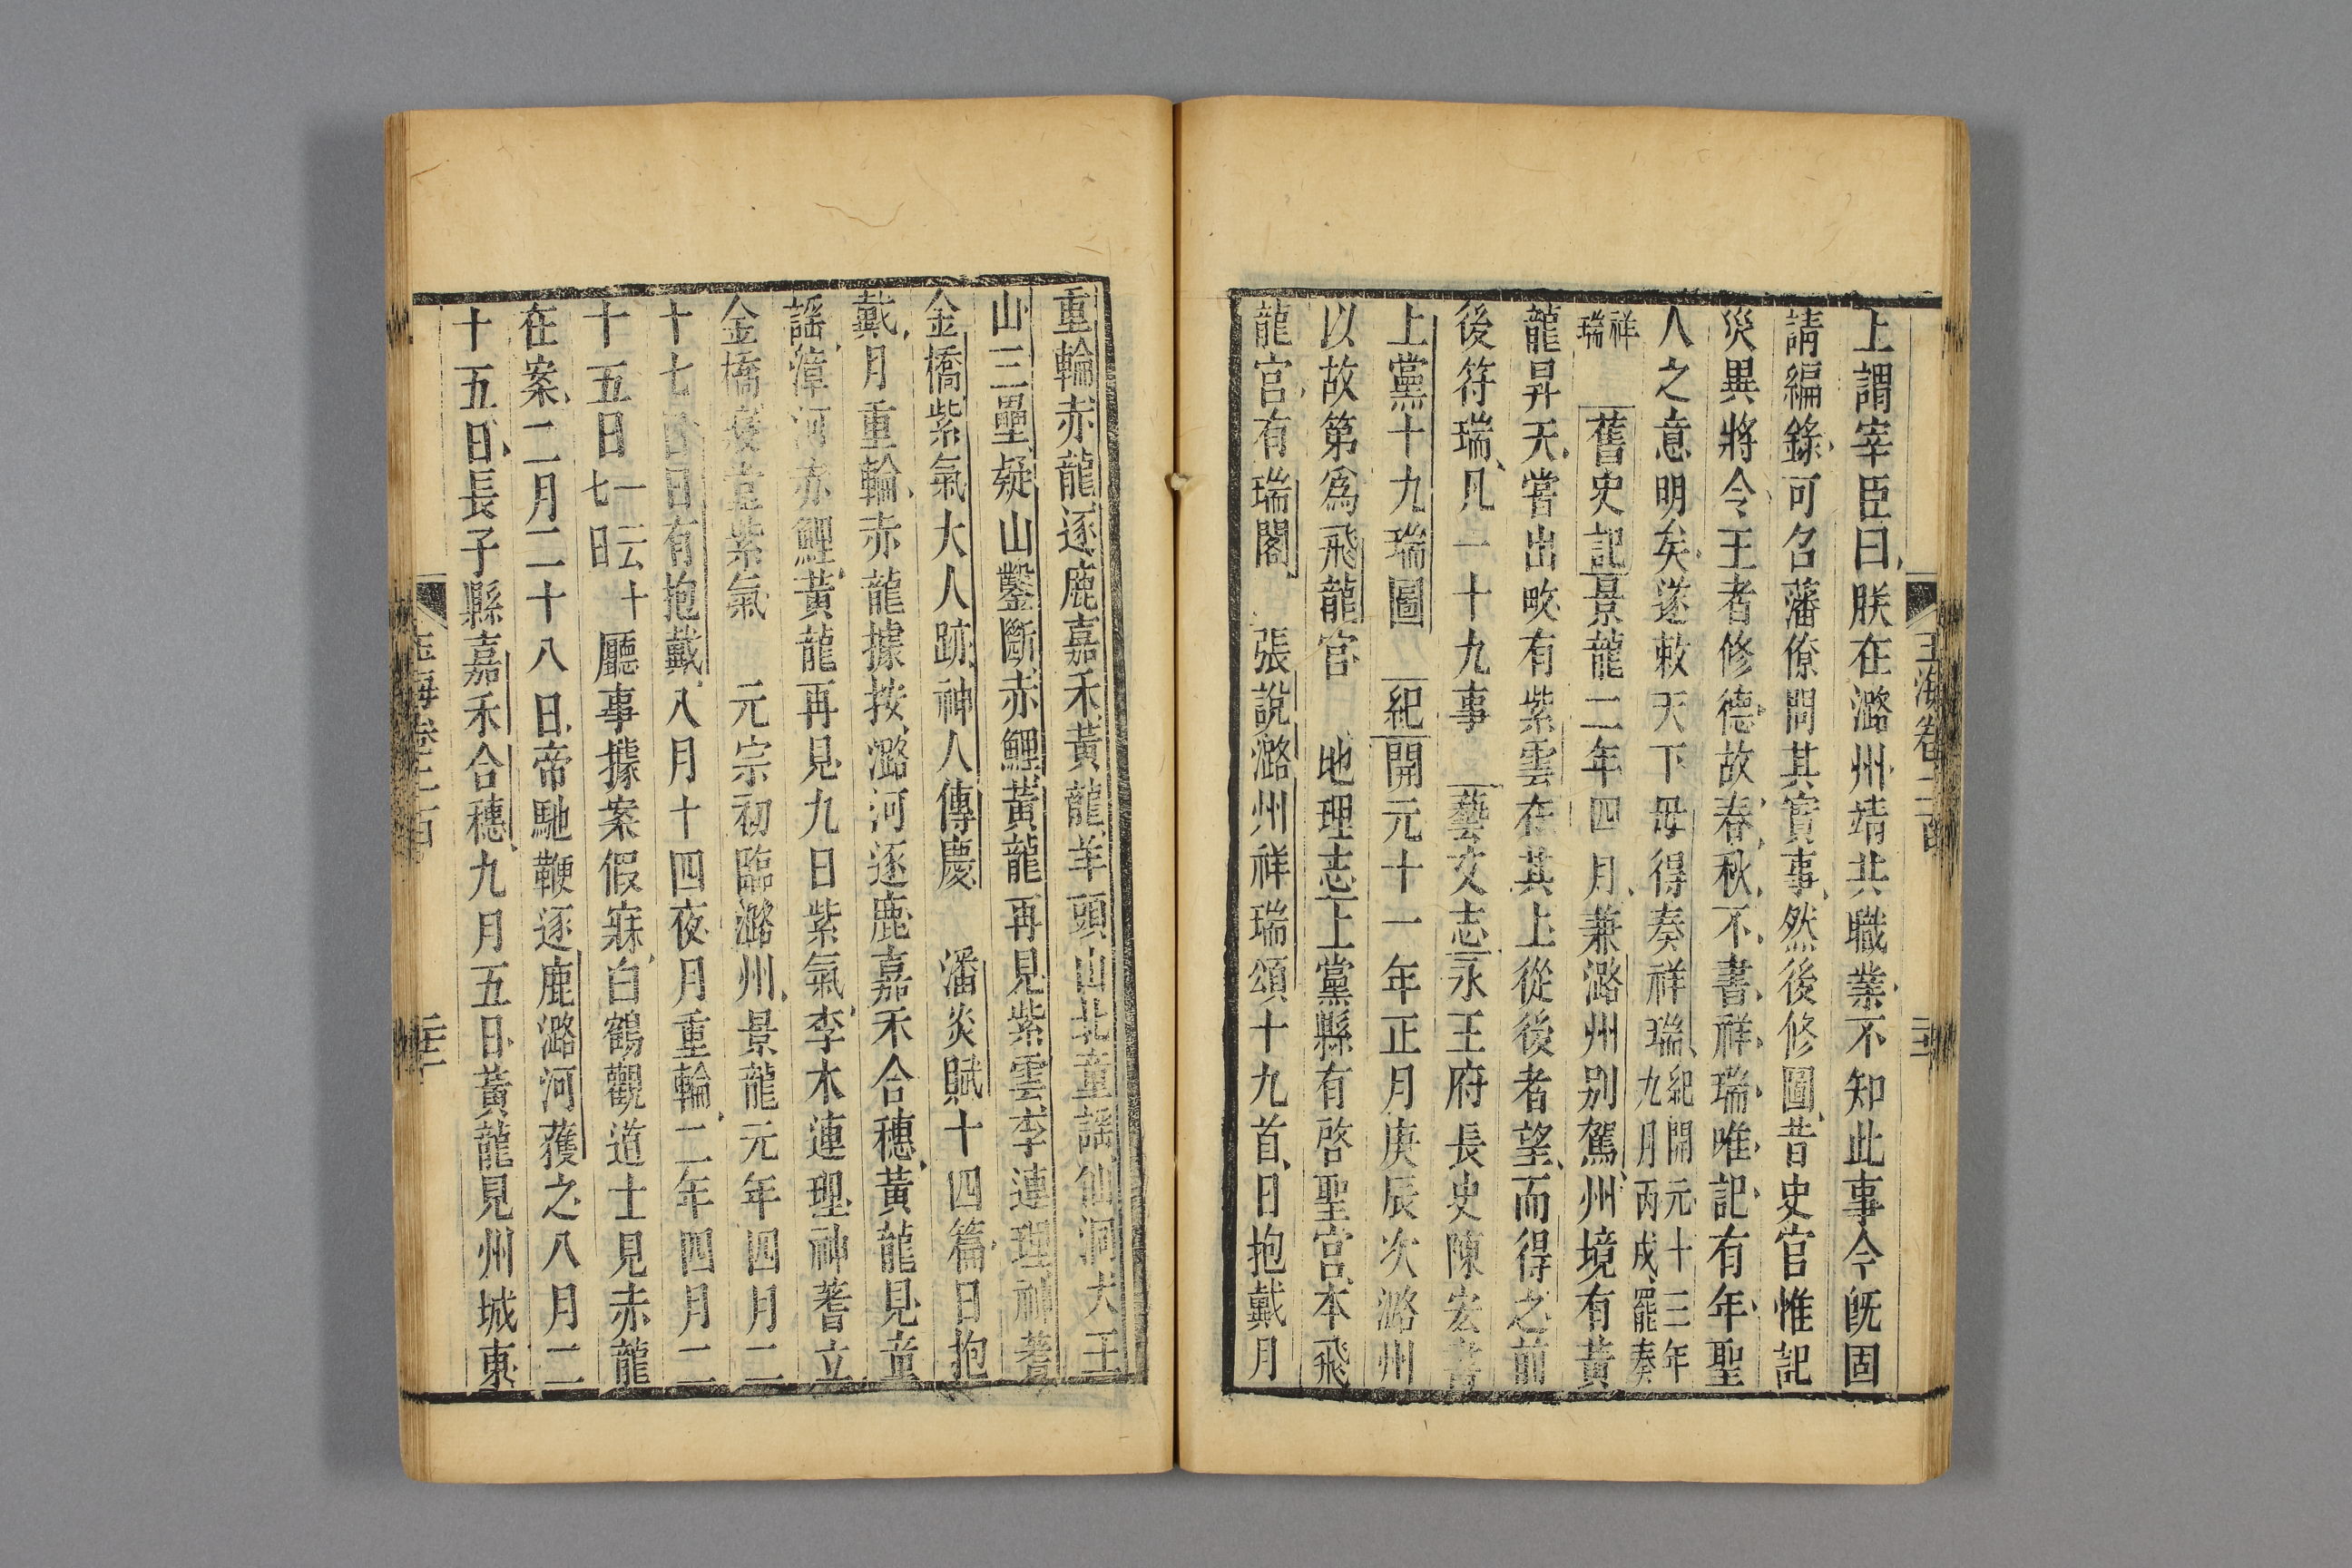 上謂宰臣曰朕在潞州靖共職業不知此事今旣固
請編錄可名藩僚問其實事然後修圖昔史官惟記
災異將令王者修德故春秋不書祥瑞唯記有年聖
人之意明矣遂敕天下毋得奏祥瑞紀開元十三年九月丙戌罷奏
祥瑞 舊史記景龍二年四月兼潞州別駕州境有黃
龍昇天嘗出畋有紫雲在其上從後者望而得之前
後符瑞凡一十九事 藝文志永王府長史陳宏書
上黨十九瑞圖 紀開元十一年正月庚辰次潞州
以故第爲飛龍宮 地理志上黨縣有啓聖宮本飛
龍宮有瑞閣 張說潞州祥瑞頌十九首日抱戴月
重輪赤龍逐鹿嘉禾黃龍羊頭山北童謠仙洞大王
山三壘疑山鑿斷赤鯉黃龍再見紫雲李連理神蓍
金橋紫氣大人跡神人傳慶 潘炎賦十四篇日抱
戴月重輪赤龍據按潞河逐鹿嘉禾合穗黃龍見童
謠漳河赤鯉黃龍再見九日紫氣李木連理神蓍立
金橋寢堂紫氣 元宗初臨潞州景龍元年四月二
十七日有抱戴八月十四夜月重輪二年四月二
十五日一云十七日廳事據案假寐白鶴觀道士見赤龍
在案二月二十八日帝馳鞭逐鹿潞河獲之八月二
十五日長子縣嘉禾合穗九月五日黃龍見州城東
玉海卷二百